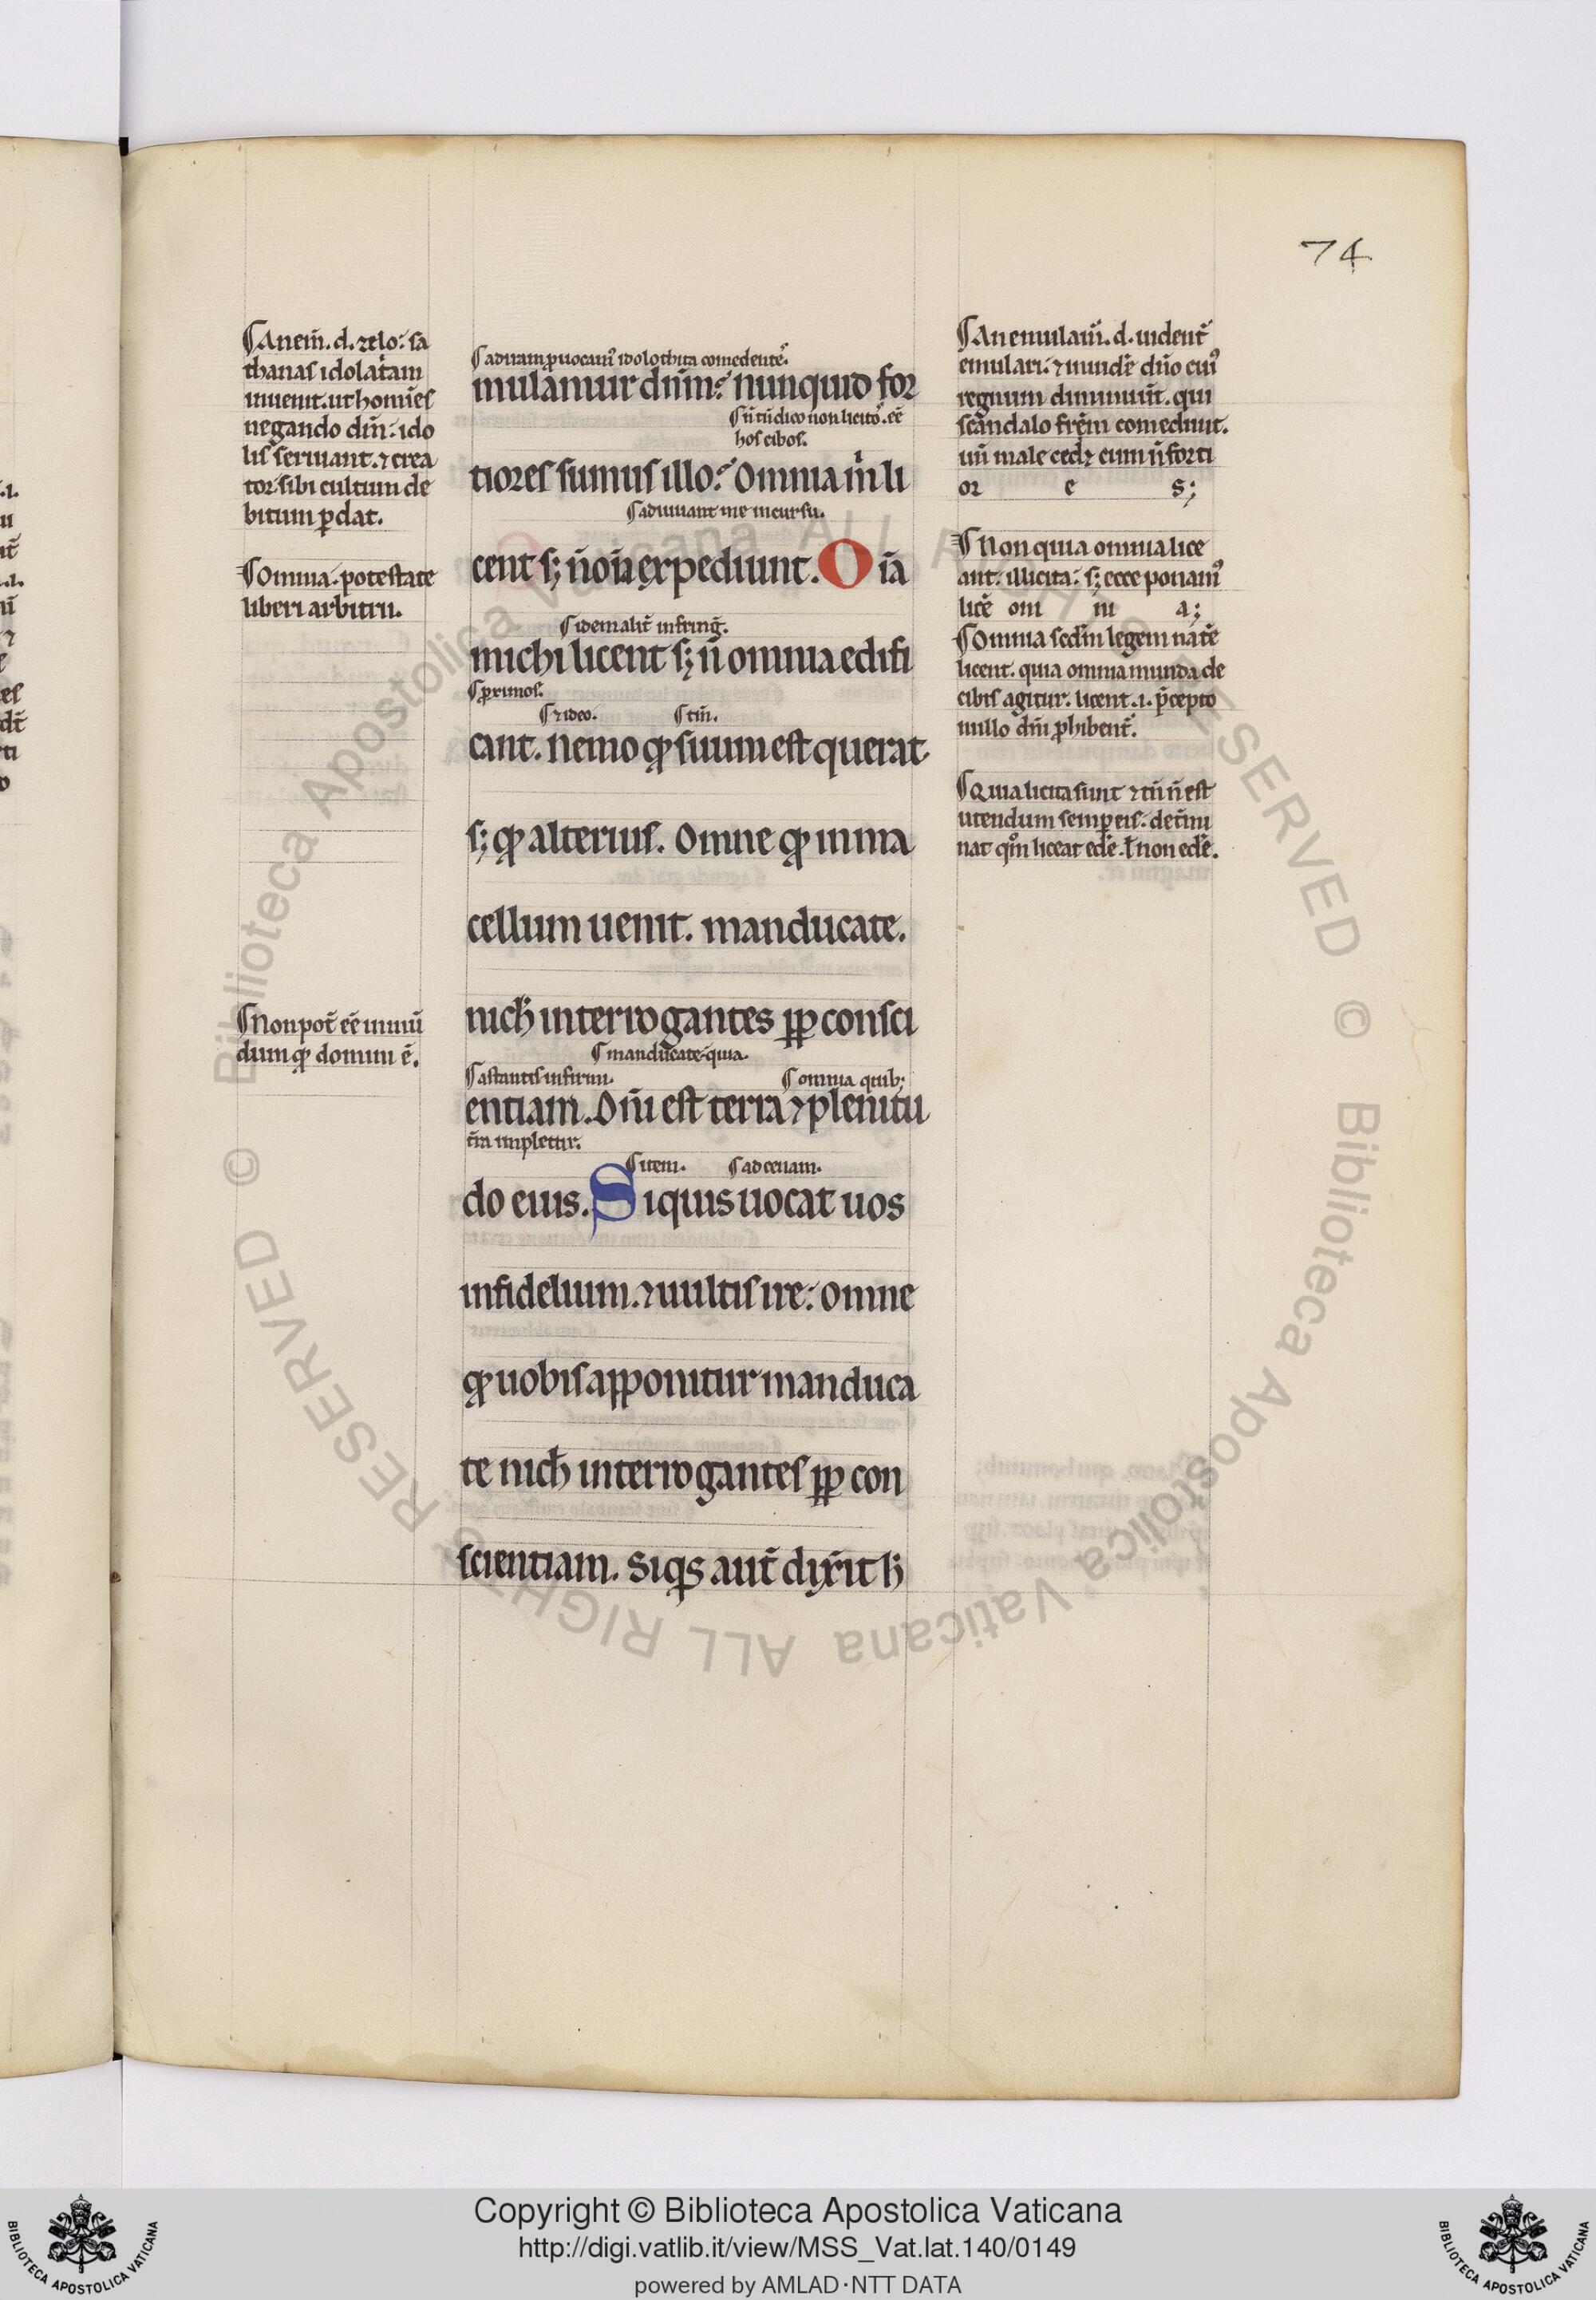 74
¶An em̄. d. zelo: sa
thanas idolat͛iam
inuenit. ut homīes
negando dn̄m: ido
lis seruiant. ⁊ crea
tor sibi cultum de
bitum ꝑdat.
¶Omnia. potestate
liberi arbitrii.
¶Non pot̄ eē inmū
dum qđ domini ē.
¶ad iram ꝓuocamꝰ idolothita comedentes.
mulamur dnm̄: nunquid for
¶n̄ tn̄ dico non licitoꝝ. eē
hos cibos.
tiores sumus illo: Omnia m̄ li
¶adiuuant me in cursu.
cent sꝫ n̄ oīa expediunt. Oīa
¶idem alit̄ infrinḡ.
michi licent sꝫ n̄ omnia edifi
¶ꝓximos.
¶⁊ ideo. ¶tm̄.
cant. nemo qđ suum est querat
sꝫ qđ alterius. Omne qđ in ma
cellum uenit. manducate.
nich̄ interrogantes ꝓp consci
¶manducate. quia.
¶astantis infirmi. ¶omnia quibꝫ
entiam. Dn̄i est terra ⁊ plenitu
t͛ra impletur.
¶item. ¶ad cenam.
do eius. Siquis uocat uos
infidelium. ⁊ uultis ire: omne
qđ uobis apponitur manduca
te nich̄ interrogantes ꝓp con
scientiam. Siqͥs aut̄ dix̄it h̄
¶An emulam̄. d. uident̄
emulari. ⁊ inuid͛e dn̄o cuiꝰ
regnum diminuūt. qui
scandalo fr̄em comedunt.
un̄ male cedꝫ eum n̄ forti
or e s;
¶Non quia omnia lice
ant. illicita: sꝫ ecce ponamꝰ
licē om ni a;
¶Omnia scd̄m legem nat͛e
licent. quia omnia munda de
cibis agitur. licent .i. p̄cepto
nullo dn̄i ꝓhibent̄.
¶Quia licita sunt ⁊ tn̄ n̄ est
utendum semꝑ eis: det͛mi
nat qn̄ liceat ed͛e. ł non ed͛e.
Copyright © Biblioteca Apostolica Vaticana
http://digi.vatlib.it/view/MSS_Vat.lat.140/0149
powered by AMLAD·NTT DATA
BIBLIOTECA APOSTOLICA VATICANA
BIBLIOTECA APOSTOLICA VATICANA
© Biblioteca Apostolica Vaticana ALL RIGHTS RESERVED
© Biblioteca Apostolica Vaticana ALL RIGHTS RESERVED